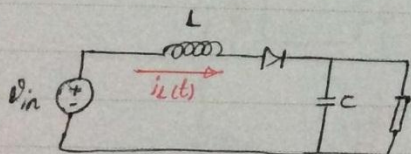 L
+
-
Vin
iL(t)
C